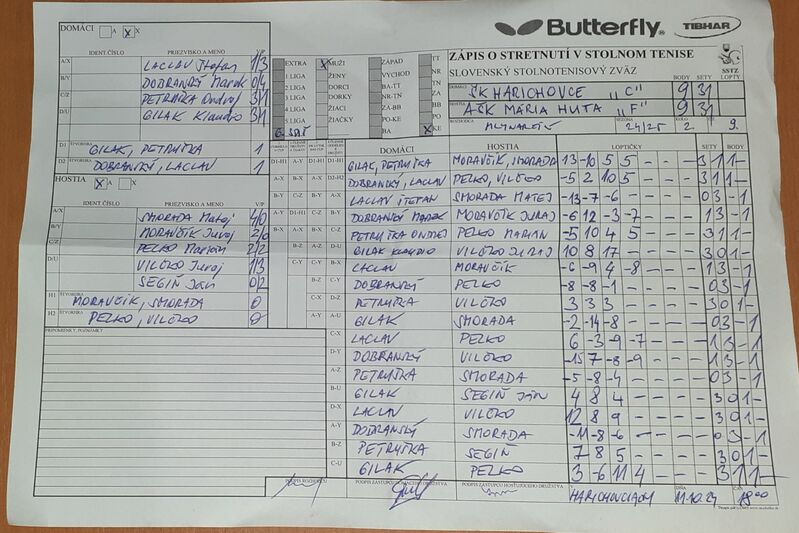 DOMÁCI A X
Butterfly
TIBHAR
IDENT.ČÍSLO PRIEZVISKO A MENO V/P
A/X LACLAV Štefan 1/3
B/Y DOBRANSKÝ Marek 0/4
C/Z PETRUŠKA Ondrej 3/1
D/U GILAK Klaudio 3/1
D1 ŠTVORHRA GILAK, PETRUŠKA 1
D2 DOBRANSKÝ, LACLAV 1
EXTRA X MUŽI ZÁPAD TT
1 LIGA ŽENY VÝCHOD NR
2 LIGA DORCI BA-TT
3 LIGA DORKY NR-TN
4 LIGA ŽIACI ZA-BB
5 LIGA ŽIAČKY PO-KE
BA X KE
ZÁPIS O STRETNUTÍ V STOLNOM TENISE
SLOVENSKÝ STOLNOTENISOVÝ ZVÄZ
SSTZ
BODY SETY LOPTY
DOMÁCI ŠK HARICHOVCE "C" 9 31
HOSTIA AŠK MÁRIA HUTA "F" 9 31
ROZHODCA SEZÓNA 24/25 KOLO 2 9.
HOSTIA X A X
IDENT.ČÍSLO PRIEZVISKO A MENO V/P
A/X SMORADA Matej 4/0
B/Y MORAVČÍK Juraj 2/0
C/Z PEĽKO Marian 2/2
D/U VILČKO Juraj 1/3
SEGIŇ Ján 0/2
H1 ŠTVORHRA MORAVČÍK, SMORADA 0
H2 ŠTVORHRA PEĽKO, VILČKO 0
PRIPOMIENKY, POZNÁMKY
DOMÁCI HOSTIA LOPTIČKY SETY BODY
D1-H1 GILAK, PETRUŠKA MORAVČÍK, SMORADA 13 -10 5 5 - - - 3 1 1 -
D2-H2 DOBRANSKÝ, LACLAV PEĽKO, VILČKO -5 2 10 5 - - - 3 1 1 -
LACLAV ŠTEFAN SMORADA MATEJ -13 -7 -6 - - - - 0 3 - 1
DOBRANSKÝ MAREK MORAVČÍK JURAJ -6 12 -3 -7 - - - 1 3 - 1
PETRUŠKA ONDREJ PEĽKO MARIÁN -5 10 4 5 - - - 3 1 1 -
GILAK KLAUDIO VILČKO JURAJ 10 8 17 - - - - 3 0 1 -
LACLAV MORAVČÍK -6 -9 4 -8 - - - 1 3 - 1
DOBRANSKÝ PEĽKO -8 -8 -1 - - - - 0 3 - 1
PETRUŠKA VILČKO 3 3 3 - - - - 3 0 1 -
GILAK SMORADA -2 -14 -8 - - - - 0 3 - 1
C-X LACLAV PEĽKO 6 -3 -9 -7 - - - 1 3 - 1
D-Y DOBRANSKÝ VILČKO -15 7 -8 -9 - - - 1 3 - 1
A-Z PETRUŠKA SMORADA -5 -8 -4 - - - - 0 3 - 1
B-U GILAK SEGIŇ JÁN 4 8 4 - - - - 3 0 1 -
D-X LACLAV VILČKO 12 8 9 - - - - 3 0 1 -
A-Y DOBRANSKÝ SMORADA -11 -8 -6 - - - - 0 3 - 1
B-Z PETRUŠKA SEGIŇ 7 8 5 - - - - 3 0 1 -
C-U GILAK PEĽKO 3 -6 11 4 - - - 3 1 1 -
PODPIS ROZHODCU PODPIS ZÁSTUPCU DOMÁCEHO DRUŽSTVA PODPIS ZÁSTUPCU HOSŤUJÚCEHO DRUŽSTVA V HARICHOVCIACH DŇA 11.10.24 ČAS 18:00